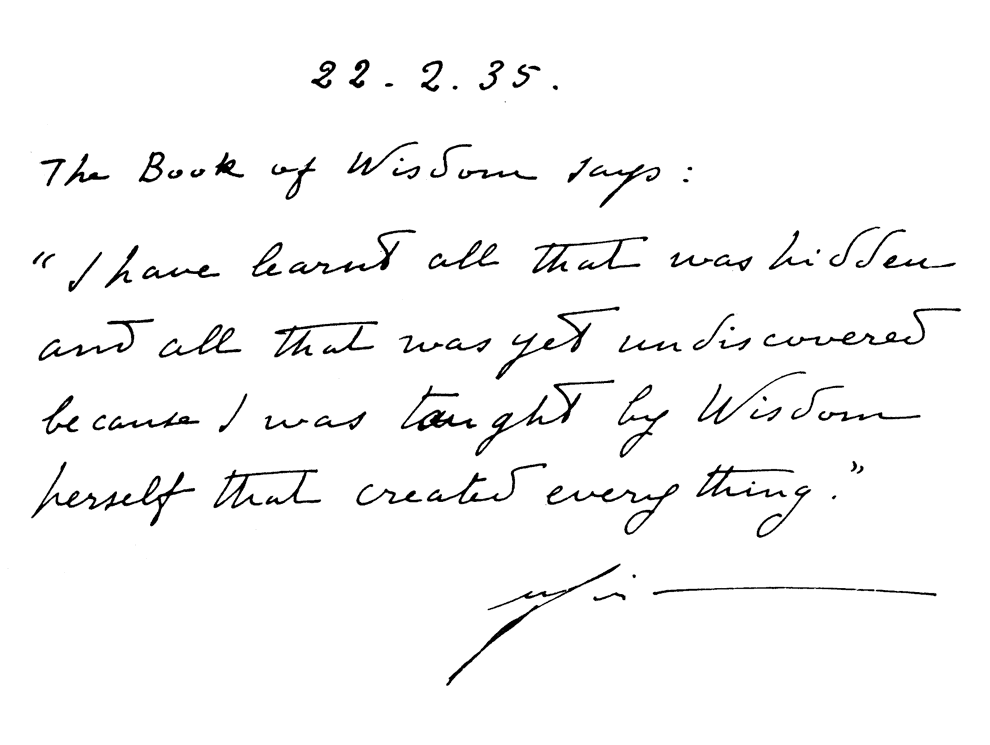 22.2.35.
The Book of Wisdom says:
“I have learnt all that was hidden
and all that was yet undiscovered
because I was taught by Wisdom
herself that created everything.”